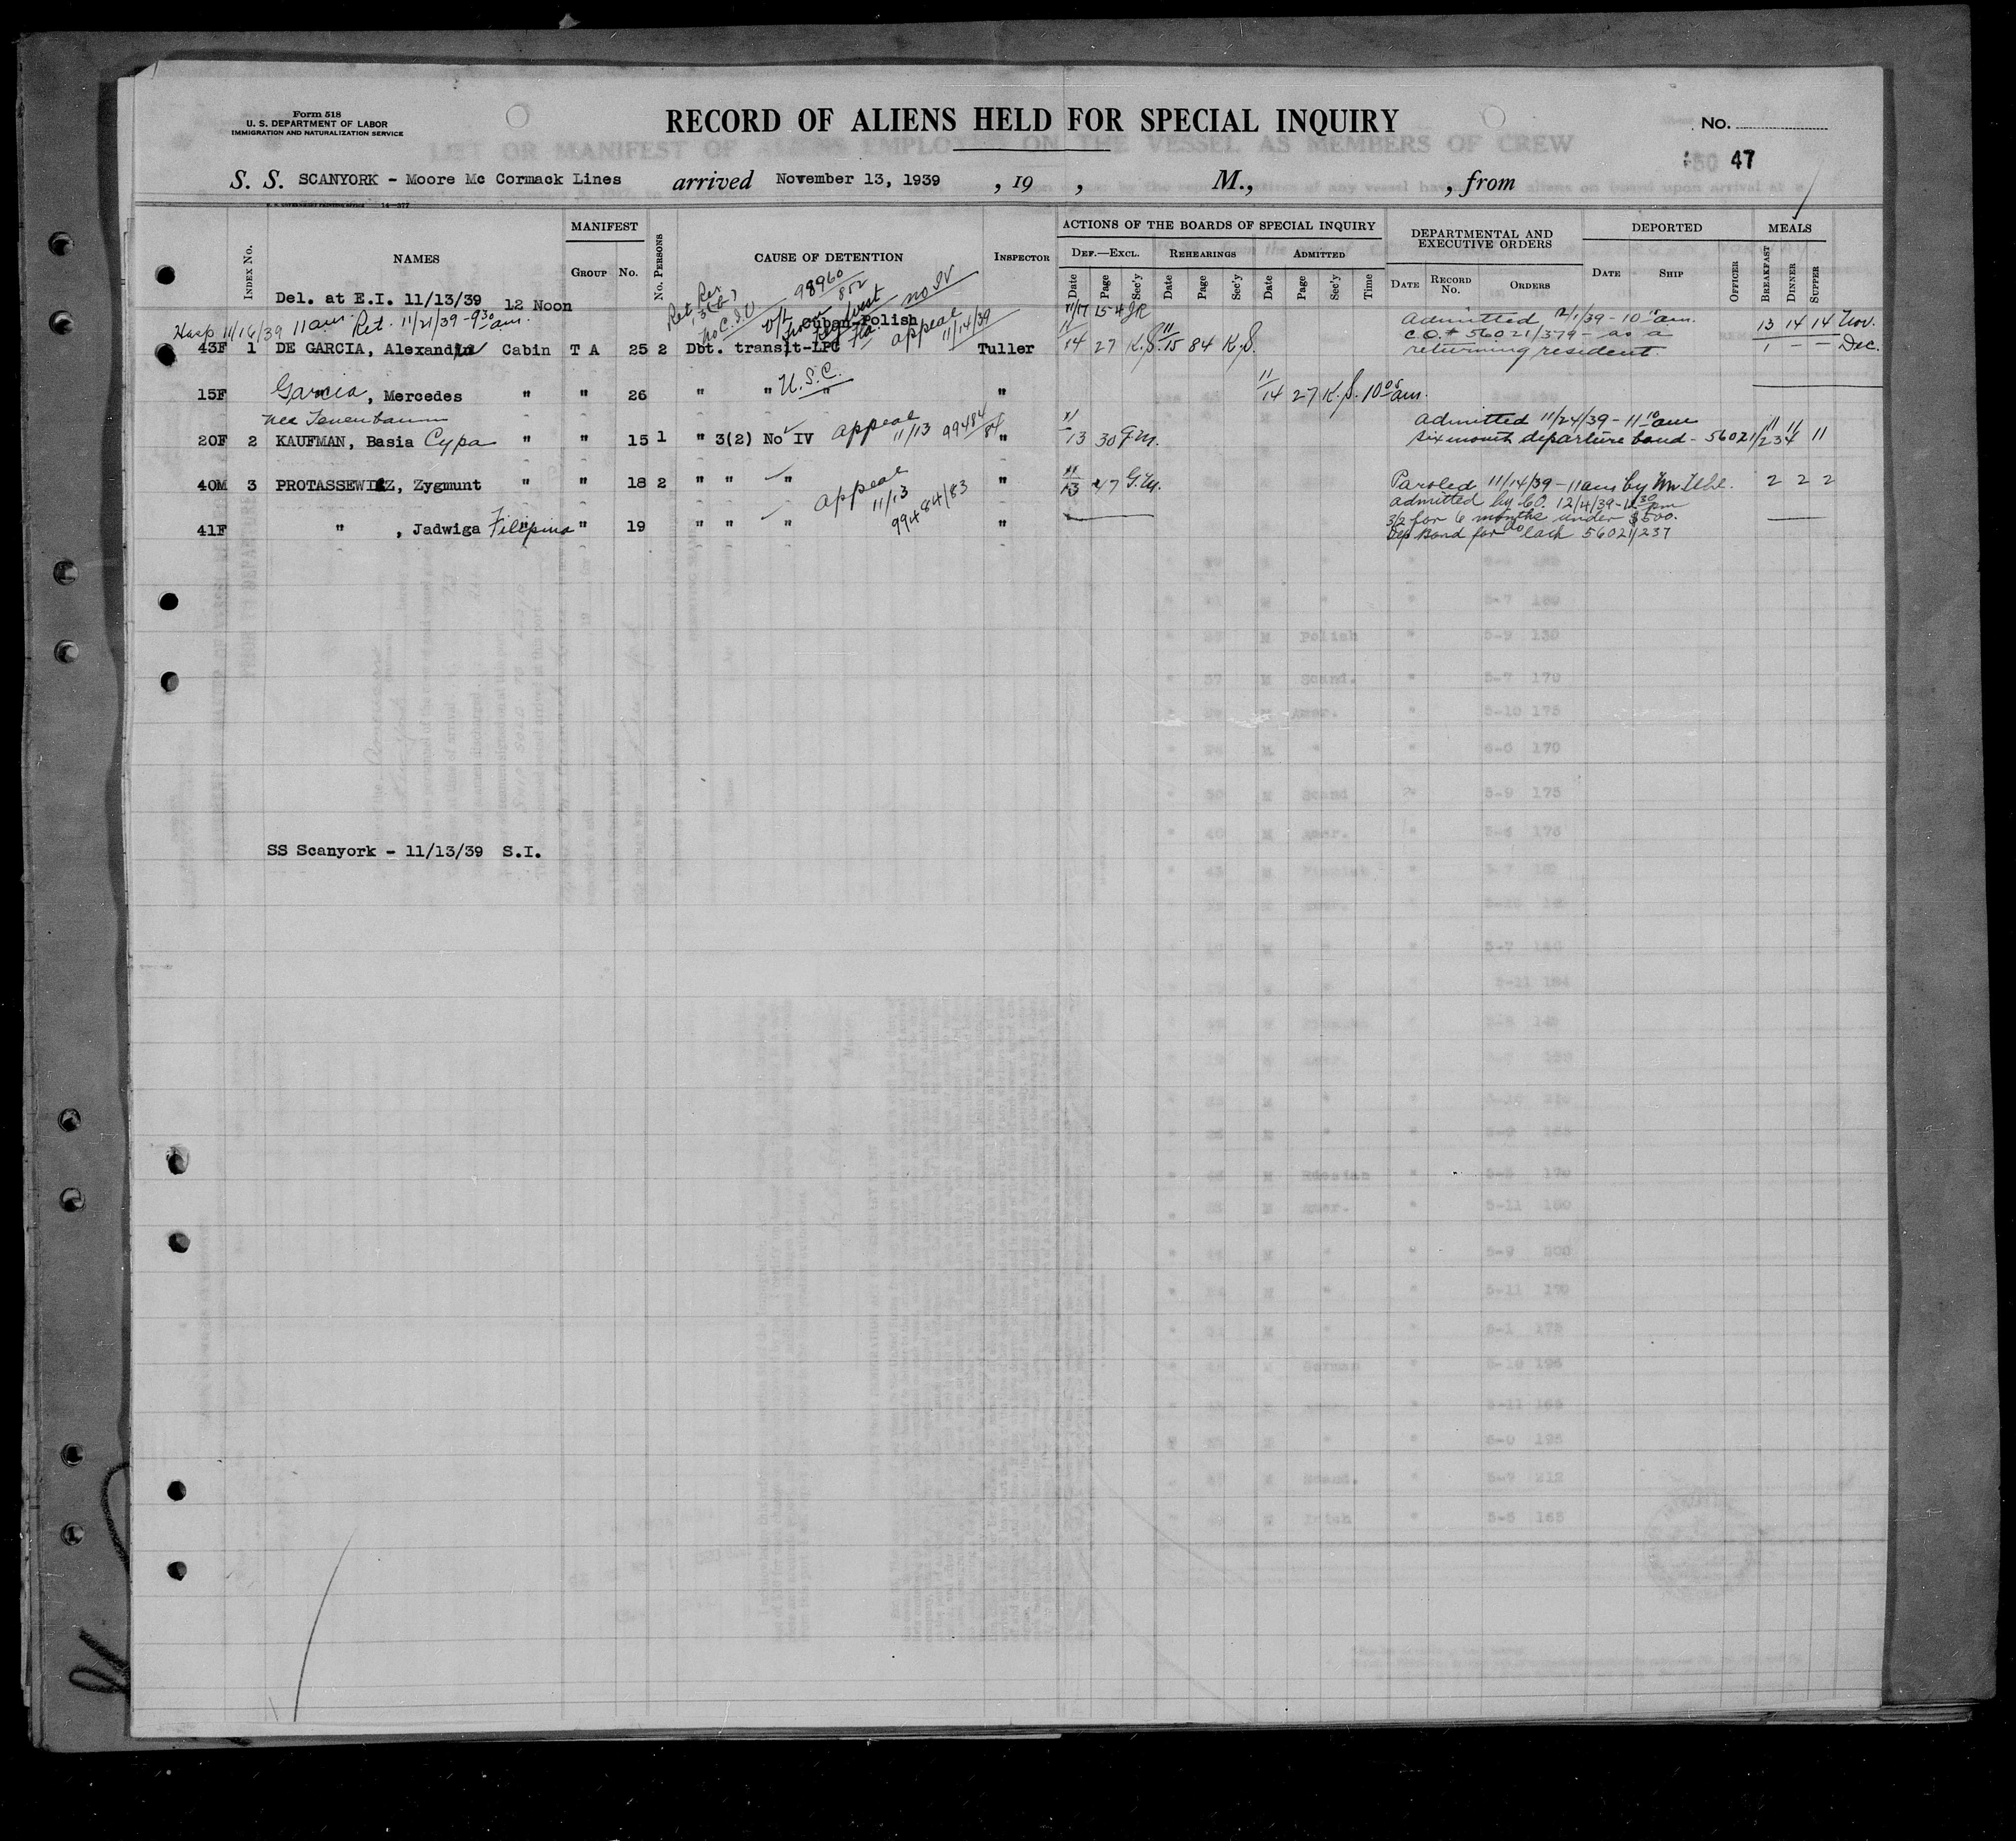 Form 518
U. S. DEPARTMENT OF LABOR
IMMIGRATION AND NATURALIZATION SERVICE
RECORD OF ALIENS HELD FOR SPECIAL INQUIRY
No.
47
S. S. SCANYORK - Moore Mc Cormack Lines arrived November 13, 1939 , 19 , M., , from
INDEX NO. NAMES MANIFEST GROUP NO. NO. PERSONS CAUSE OF DETENTION INSPECTOR
ACTIONS OF THE BOARDS OF SPECIAL INQUIRY
DEF.—EXCL. REHEARINGS ADMITTED
Date Page Sec'y Date Page Sec'y Date Page Sec'y Time
DEPARTMENTAL AND EXECUTIVE ORDERS
DATE RECORD NO. ORDERS
DEPORTED
DATE SHIP OFFICER
MEALS
BREAKFAST DINNER SUPPER
Del. at E.I. 11/13/39 12 Noon
Hosp 11/16/39 11 am. Ret. 11/21/39 - 9 30 am.
98960/852 no IV
Cuban-Polish
11/17 154 JR
43F 1 DE GARCIA, Alexandra Cabin T A 25 2 Dbt. transit-LPC appeal 11/14/39 Tuller 11/14 27 K.S. 11/15 84 K.S.
Admitted 12/1/39 - 10 10 am.
C.O. # 56021/379 - as a
returning resident.
13 14 14 Nov.
1 - - Dec.
15F Garcia, Mercedes " " 26 " " U.S.C. " " 11/14 27 K.S. 10 05 am.
nee Tenenbaum
20F 2 KAUFMAN, Basia Cypa " " 15 1 " 3(2) No IV appeal 11/13 99484/84 " 11/13 30 G.M.
Admitted 11/24/39 - 11 10 am
six month departure bond - 56021/234 11 11 11
40M 3 PROTASSEWICZ, Zygmunt " " 18 2 " " " appeal 11/13 99484/83 " 11/13 47 G.M.
Paroled 11/14/39 - 11 am by Mr Uhl. 2 2 2
41F " , Jadwiga Filipina " " 19 " " " "
admitted by CO. 12/4/39 - 12 30 pm
3/2 for 6 months under $500.
Dep Bond for each 56021/237
SS Scanyork - 11/13/39 S.I.